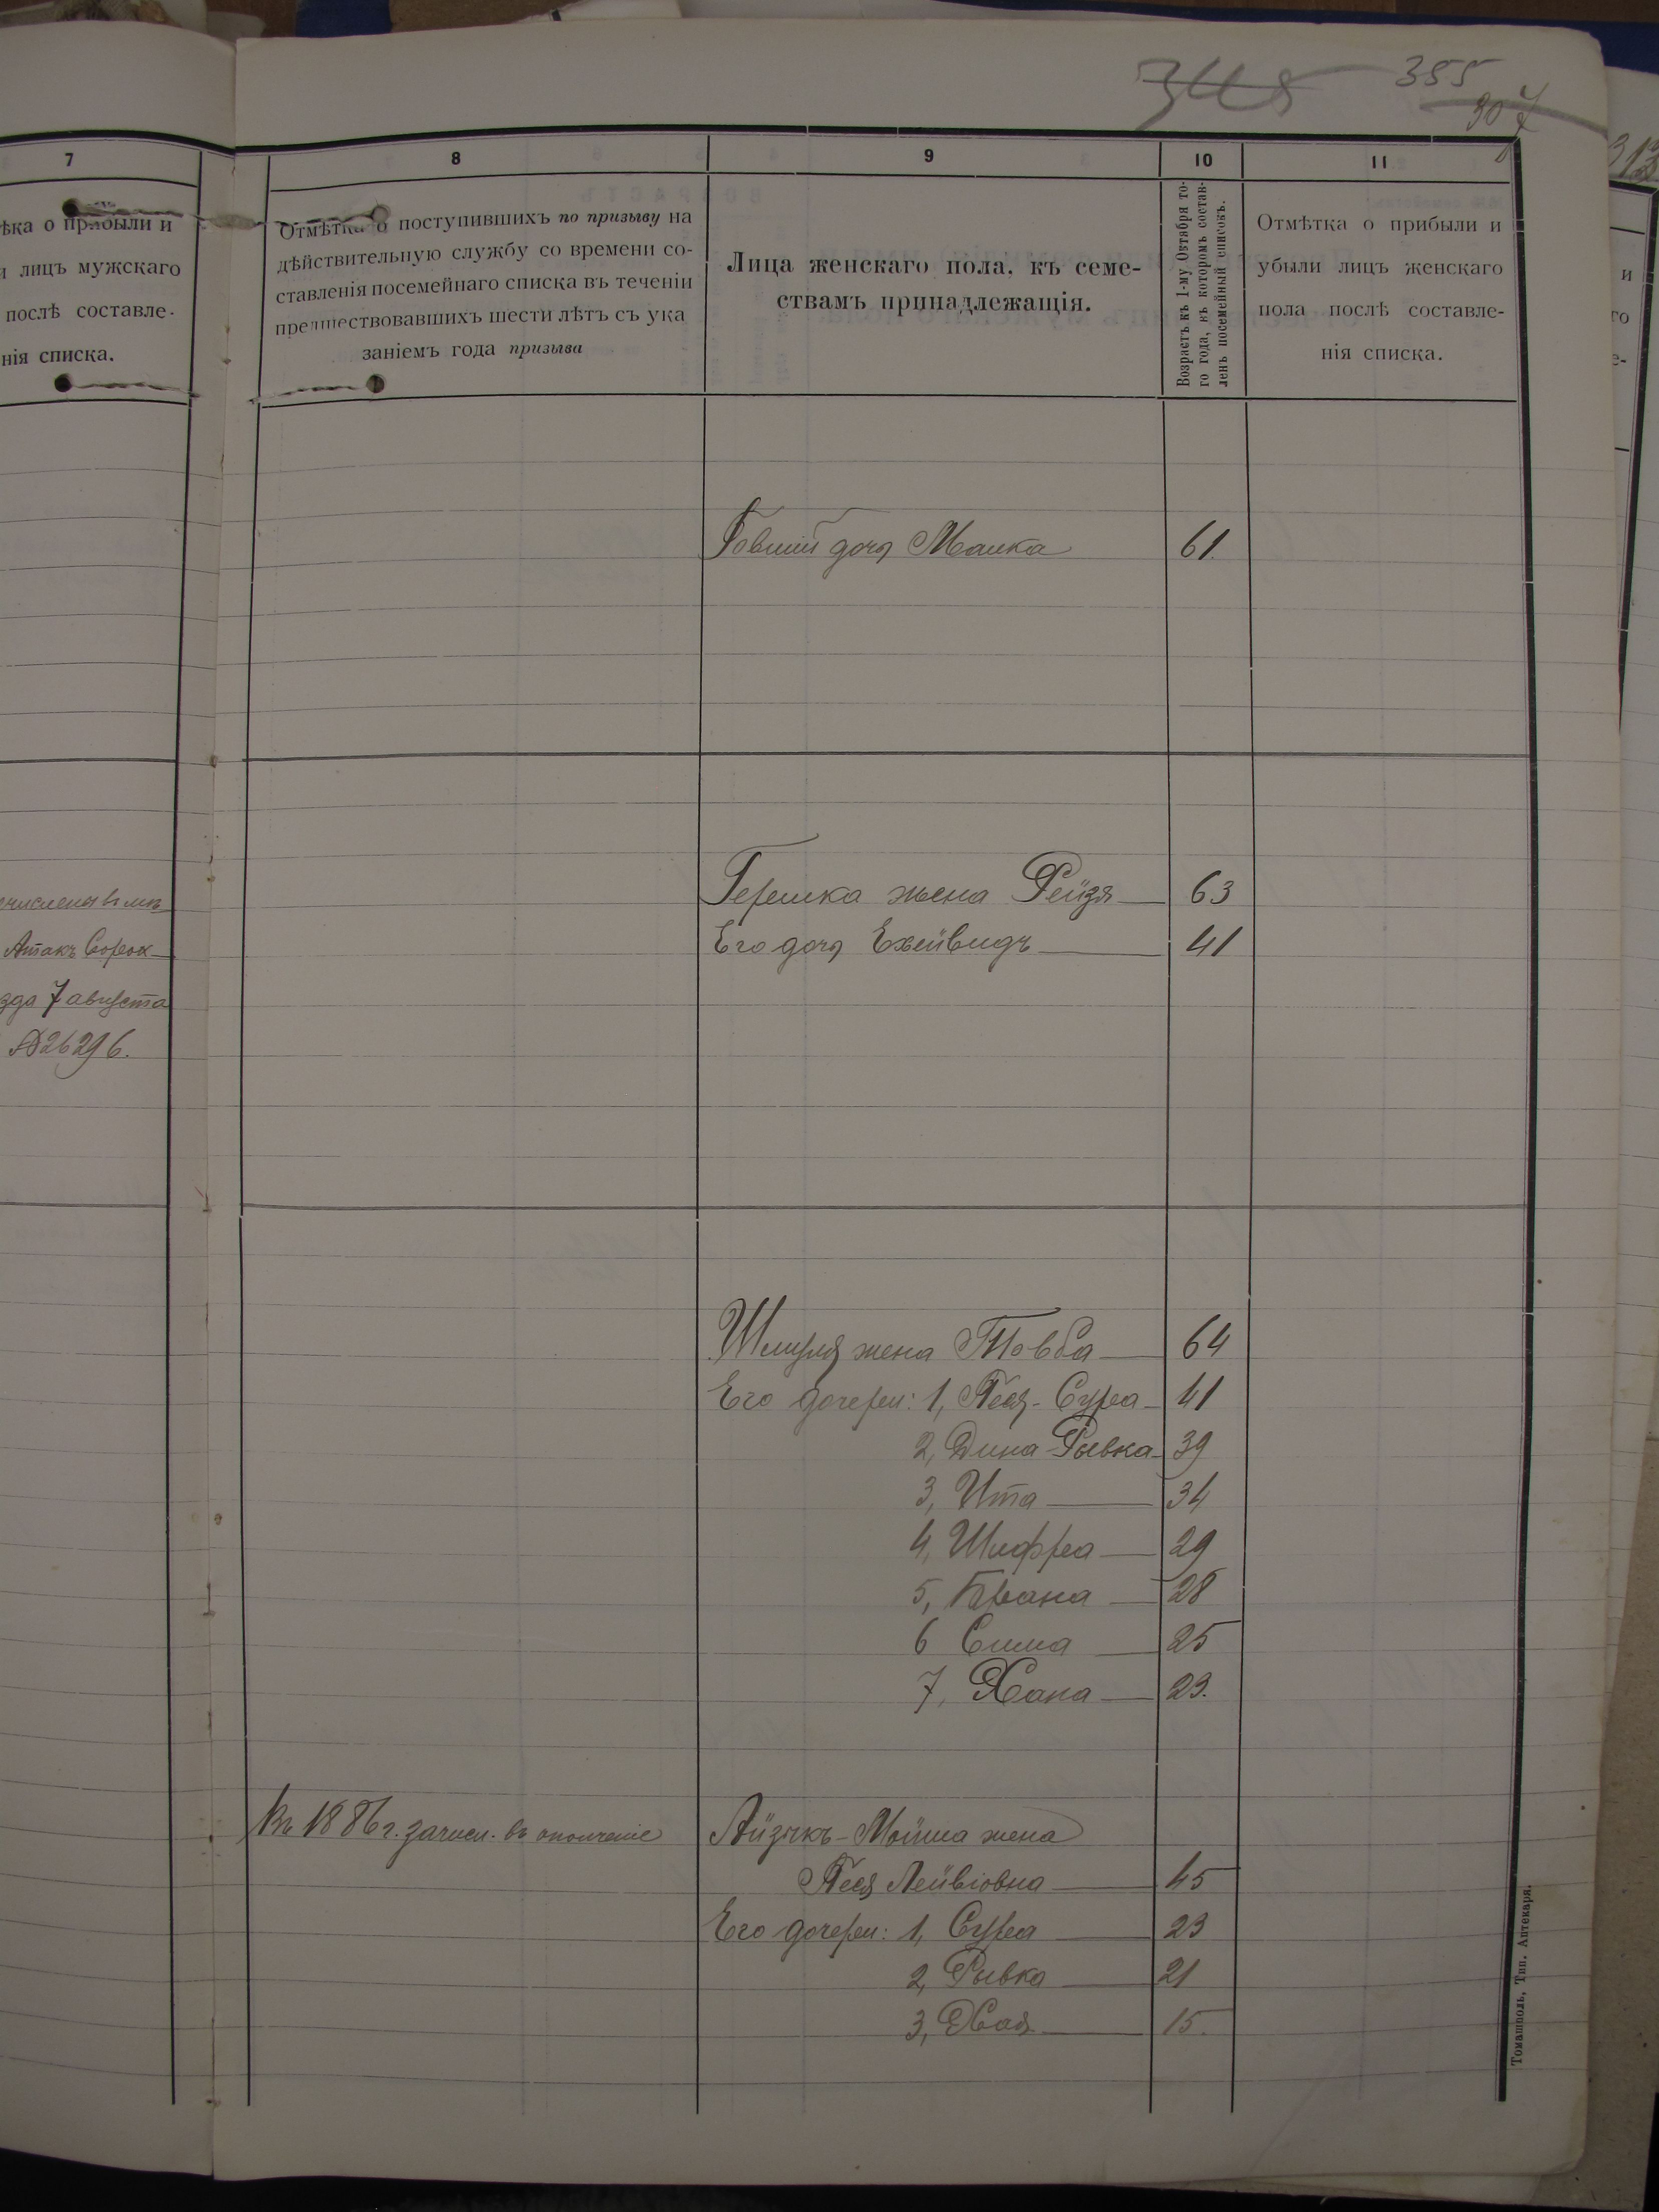 345 355
307
313
7
ѣка о прибыли и
и лицъ мужскаго
послѣ составле-
нія списка.
Атакъ Сорок
зда 7 августа
№26296.
8
Отмѣтка о поступившихъ по призыву на
дѣйствительную службу со времени со-
ставленія посемейнаго списка въ теченіи
предшествовавшихъ шести лѣтъ съ ука
заніемъ года призыва
9
Лица женскаго пола, къ семе-
ствамъ принадлежащія.
10
Возрастъ къ 1-му Октября то-
го года, въ которомъ состав-
ленъ посемейный списокъ.
11
Отмѣтка о прибыли и
убыли лицъ женскаго
пола послѣ составле-
нія списка.
дочь Малка 61.
Гершка жена Рейзя 63
Его дочь Ехейвидъ 41
Шмуля жена Товба 64
Его дочери: 1, Песя-Сура 41
2, Дина-Рывка 39
3, Ита 34
4, Шифра 29
5, Брана 28
6 Сима 25
7, Хана 23.
Въ 1886г. зачисл. въ ополченіе
Айзикъ-Мойша жена
Песя Лейвіовна 45
Его дочери: 1, Сура 23
2, Рывка 21
3, Хая 15.
Томашполь, Тип. Аптекаря.